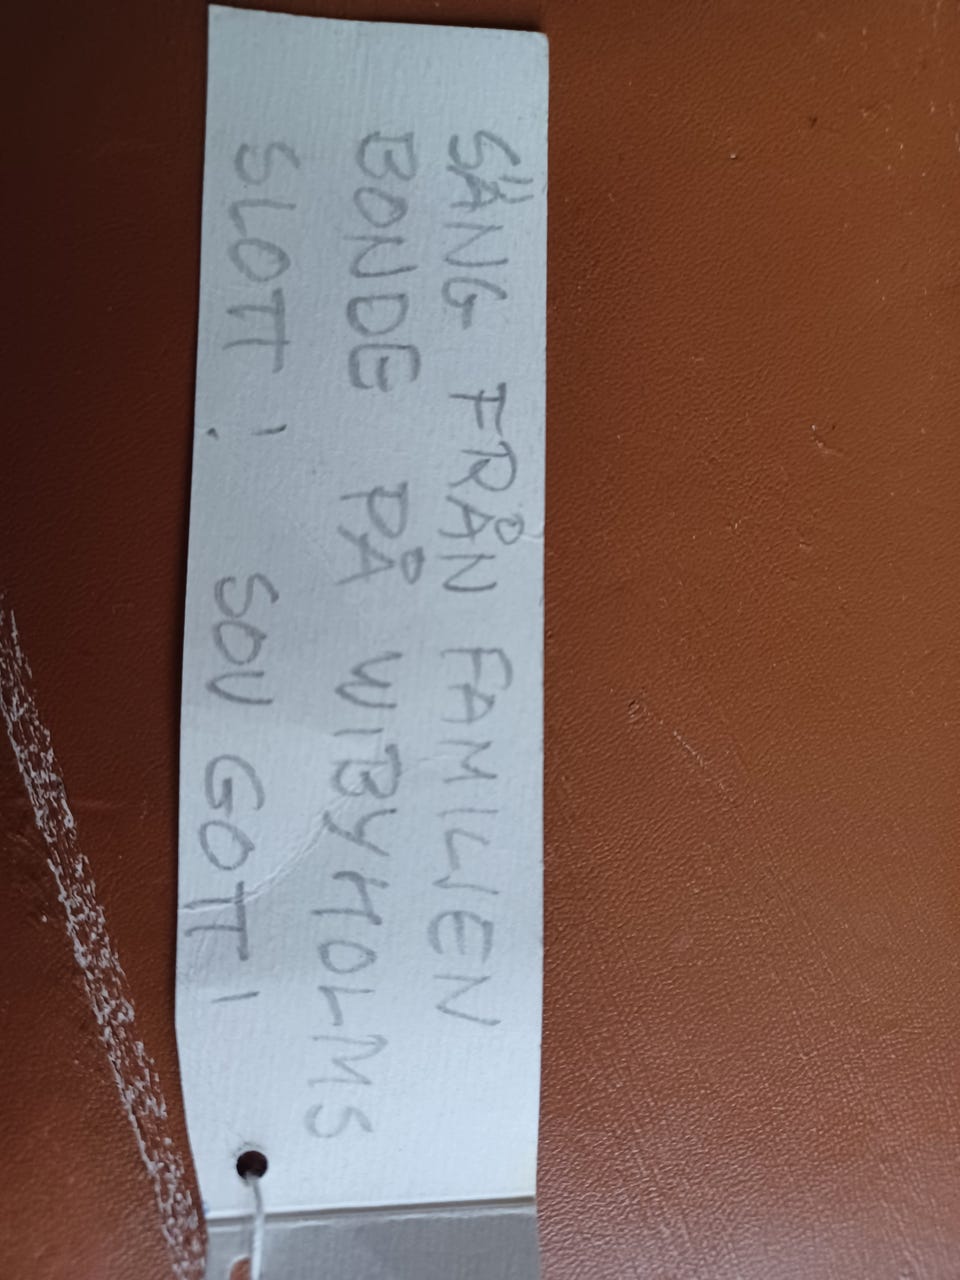 SÄNG FRÅN FAMILJEN
BONDE PÅ WIBYHOLMS
SLOTT! SOV GOTT!